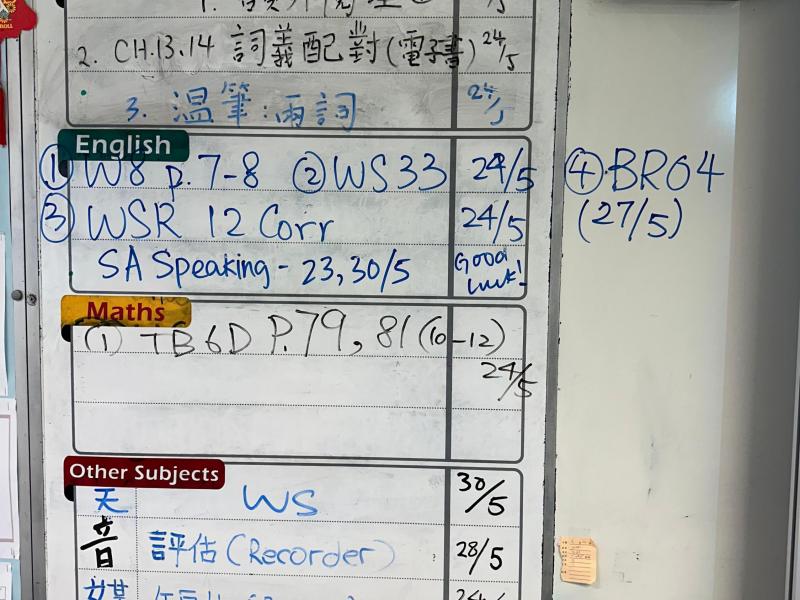 2. CH.13.14 詞義配對(電子書) 24/5
3. 温筆:兩詞 24/5
English
① W8 p.7-8 ② WS33 24/5 ④ BR04
③ WSR 12 Corr 24/5 (27/5)
SA Speaking - 23,30/5 Good luck!
Maths
(1) TB6D P.79, 81(10-12)
24/5
Other Subjects
WS 30/5
音 評估(Recorder) 28/5